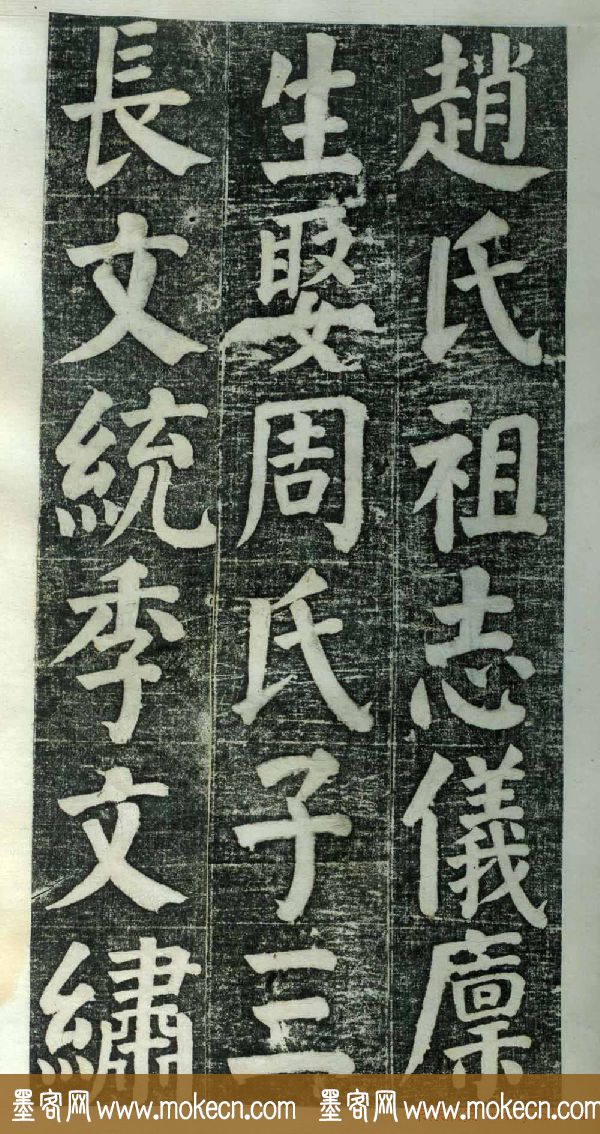 趙氏祖志儀廩
生娶周氏子三
長文統季文繡
墨客网 www.mokecn.com 墨客网 www.mokecn.com